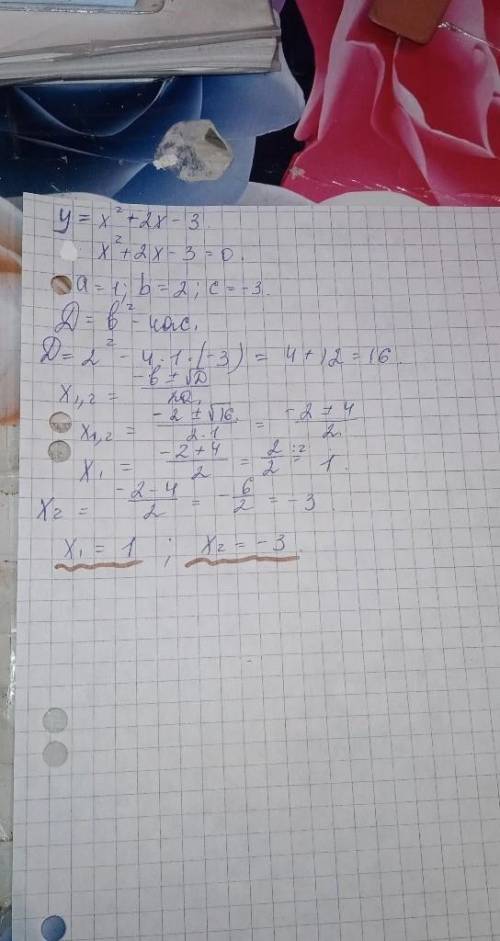 y = x² + 2x - 3.
x² + 2x - 3 = 0.
a = 1; b = 2; c = -3.
Д = b² - 4ac.
D = 2² - 4·1·(-3) = 4 + 12 = 16.
x₁,₂ = (-b ± √D)/2a.
x₁,₂ = (-2 ± √16)/(2·1) = (-2 ± 4)/2
x₁ = (-2+4)/2 = 2/2 :2 = 1.
x₂ = (-2-4)/2 = -6/2 = -3
x₁ = 1 ; x₂ = -3.